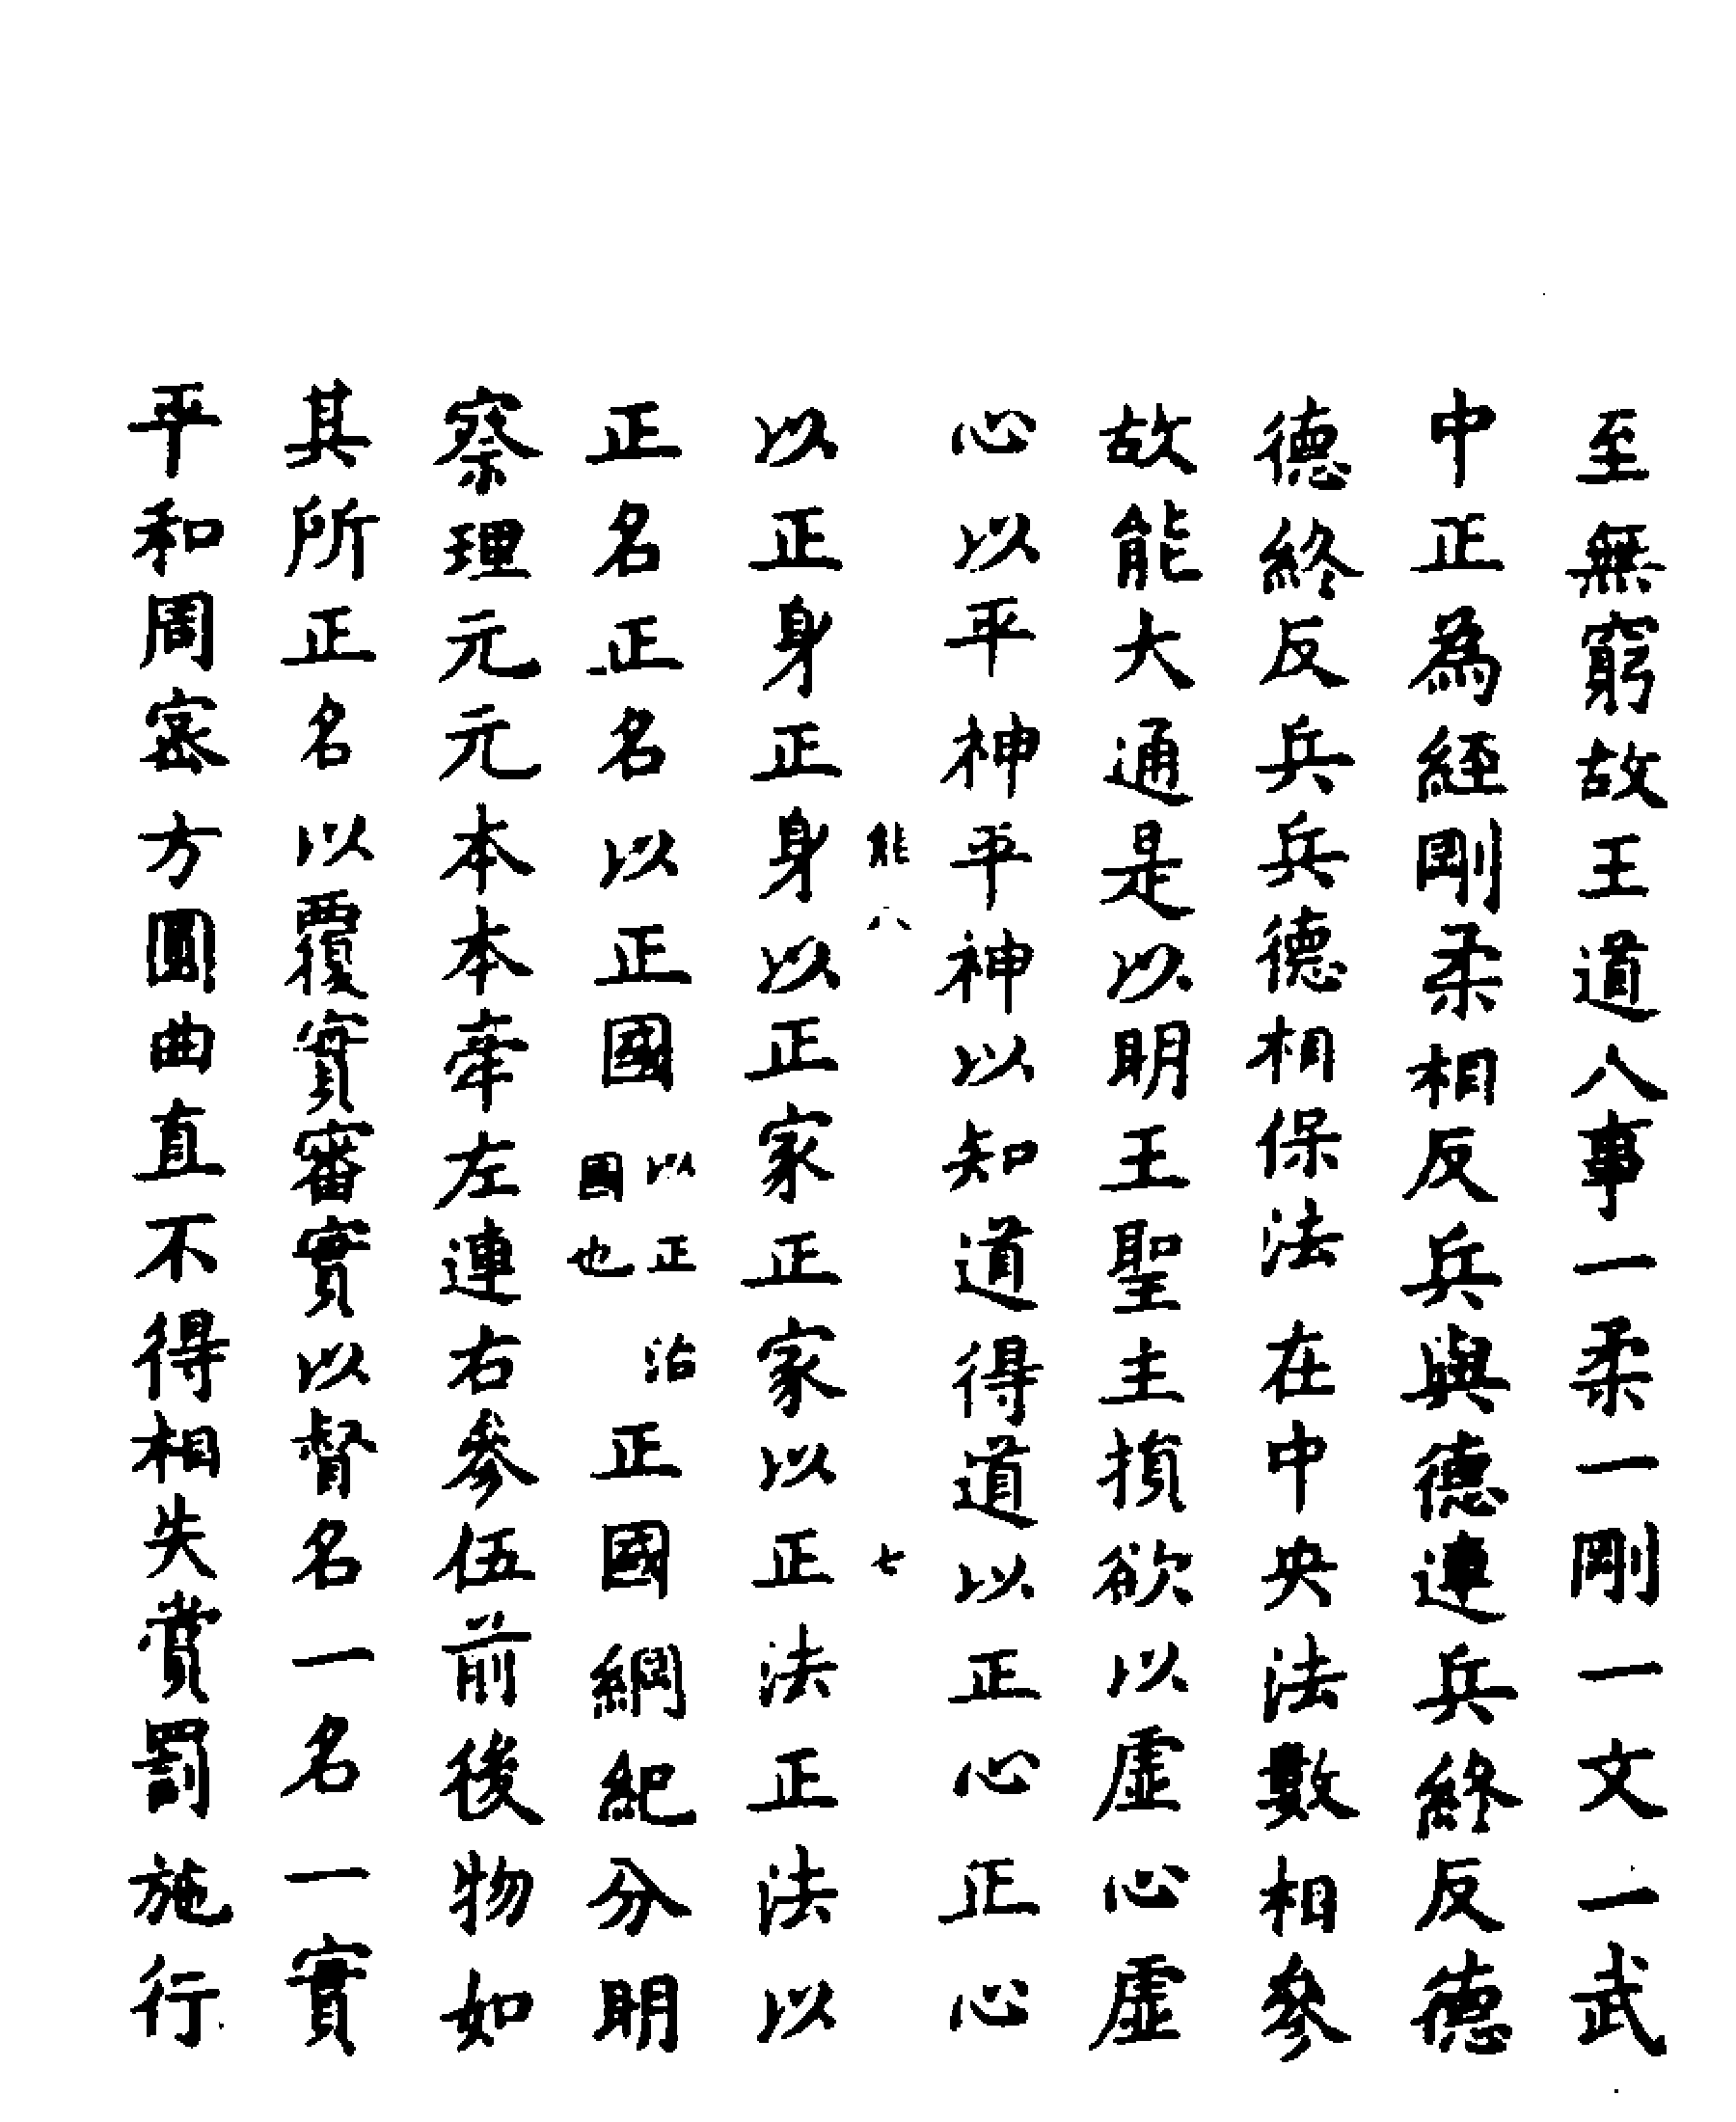 至無窮故王道八事一柔一剛一文一武
中正為經剛柔相反兵與德連兵終反德
德終反兵兵德相保法在中央法數相參
故能大通是以明王聖主損欲以虛心虛
心以平神平神以知道得道以正心正心
能八 七
以正身正身以正家正家以正法正法以
正名正名以正國以正治國也正國綱紀分明
察理元元本本牽左連右參伍前後物如
其所正名以覆實審實以督名一名一實
平和周密方圓曲直不得相失賞罰施行